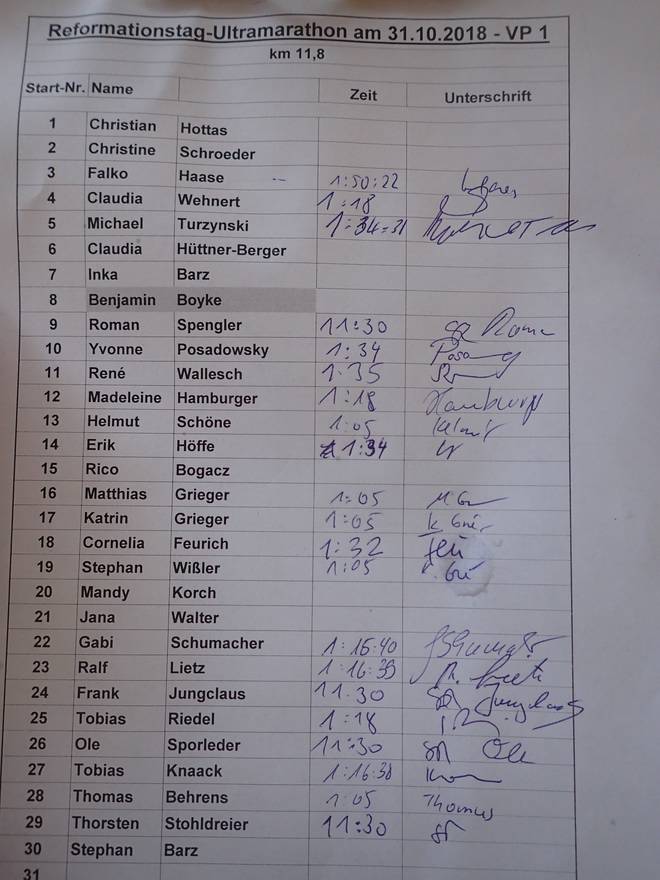 Reformationstag-Ultramarathon am 31.10.2018 - VP 1
km 11,8
Start-Nr. Name Zeit Unterschrift
1 Christian Hottas
2 Christine Schroeder
3 Falko Haase 1:50:22
4 Claudia Wehnert 1:18
5 Michael Turzynski 1:34:31
6 Claudia Hüttner-Berger
7 Inka Barz
8 Benjamin Boyke
9 Roman Spengler 11:30 Roman
10 Yvonne Posadowsky 1:34
11 René Wallesch 1:35
12 Madeleine Hamburger 1:18 Hamburger
13 Helmut Schöne 1:05
14 Erik Höffe 1:34
15 Rico Bogacz
16 Matthias Grieger 1:05
17 Katrin Grieger 1:05
18 Cornelia Feurich 1:32
19 Stephan Wißler 1:05
20 Mandy Korch
21 Jana Walter
22 Gabi Schumacher 1:15:40
23 Ralf Lietz 1:16:39
24 Frank Jungclaus 11:30 Jungclaus
25 Tobias Riedel 1:18
26 Ole Sporleder 11:30 Ole
27 Tobias Knaack 1:16:38
28 Thomas Behrens 1:05 Thomas
29 Thorsten Stohldreier 11:30
30 Stephan Barz
31